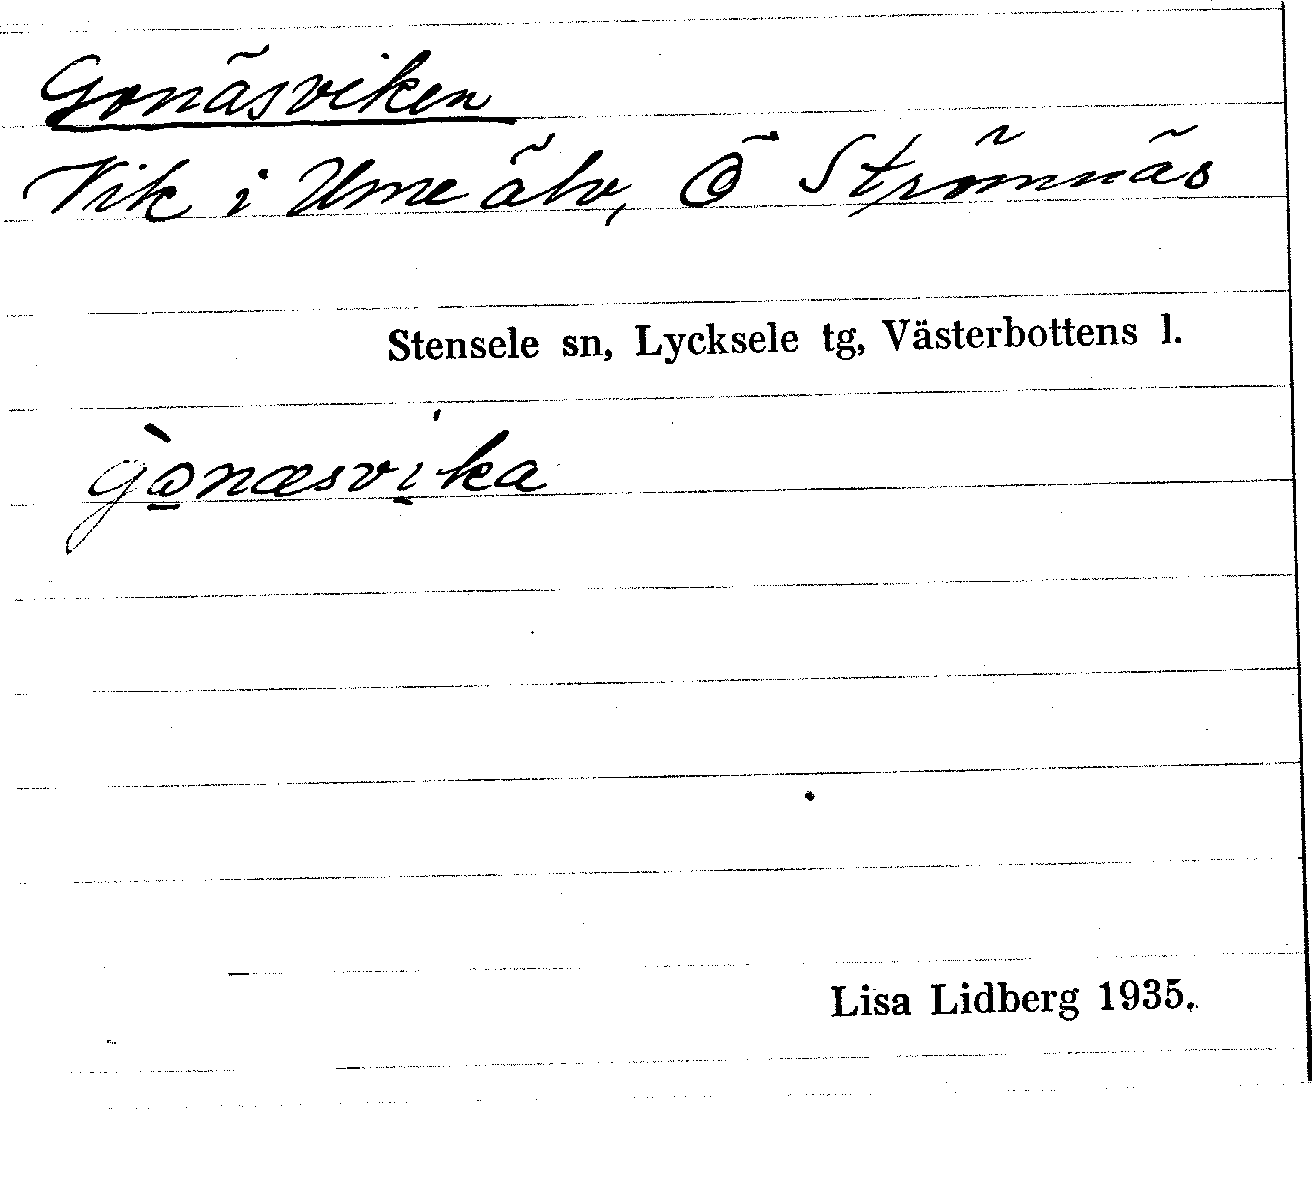 Gonäsviken
Vik i Ume älv, Ö Strömnäs
Stensele sn, Lycksele tg, Västerbottens l.
Lisa Lidberg 1935.